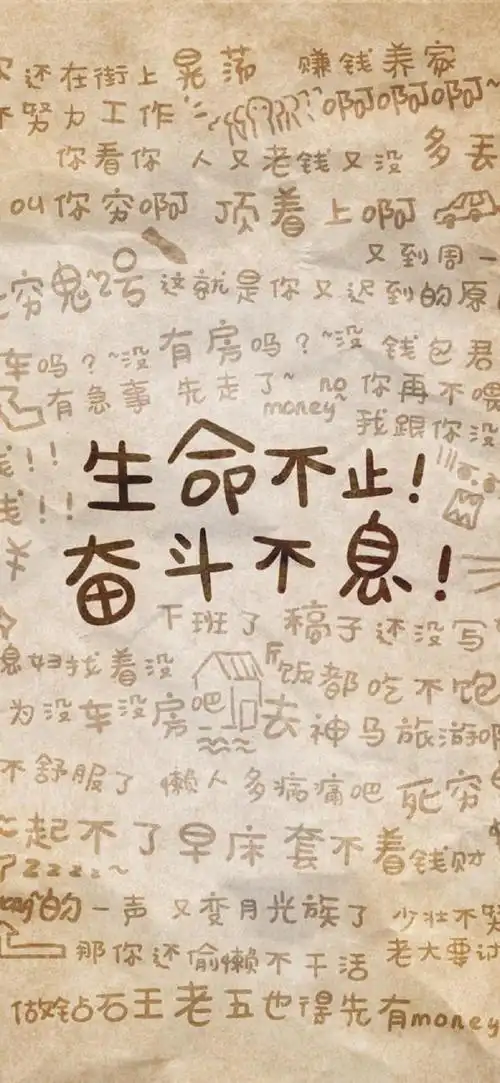 还在街上晃荡 赚钱养家
不努力工作 啊啊啊啊~
你看你 人又老钱又没 多丢
叫你穷啊 顶着上啊
又到周一
穷鬼~2号 这就是你又迟到的原
车吗？~没有房吗？~没 钱包君
有急事 先走了~ no money~ 你再不喂
我跟你没
!!
钱!!
生命不止！
奋斗不息！
下班了 稿子还没写
媳妇找着没 饭都吃不饱
为没车没房吧 去神马旅游啊
不舒服了 懒人多病痛吧 死穷
起不了早床 套不着钱财
了zzzzz~
的一声 又变月光族了 少壮不努
那你还偷懒不干活 老大要讨
做钻石王老五也得先有money